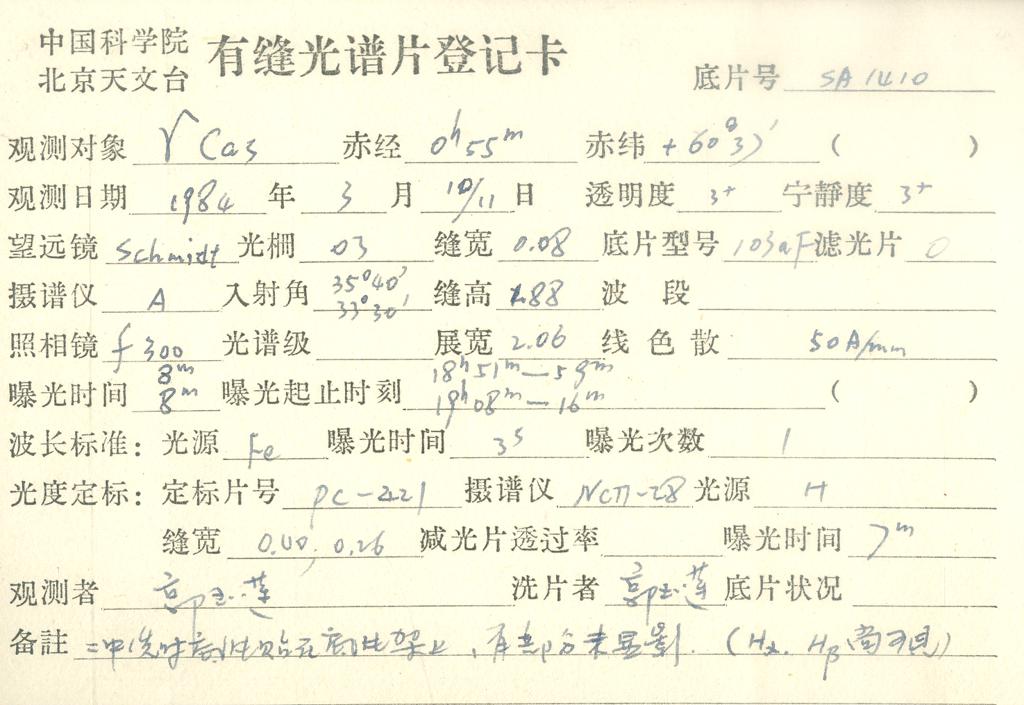 中国科学院 有缝光谱片登记卡
北京天文台 底片号 SA1410
观测对象 γ Cas 赤经 0h55m 赤纬 +60°3)′ ( )
观测日期 1984 年 3 月 10/11 日 透明度 3+ 宁静度 3+
望远镜 Schmidt 光栅 03 缝宽 0.08 底片型号 103aF 滤光片 0
摄谱仪 A 入射角 35°40′ 33°30′ 缝高 1.88 波段
照相镜 f300 光谱级 展宽 2.06 线色散 50A/mm
曝光时间 8m 8m 曝光起止时刻 18h51m—59m 19h08m—16m ( )
波长标准: 光源 Fe 曝光时间 3s 曝光次数 1
光度定标: 定标片号 PC-221 摄谱仪 光源 H
缝宽 0.26 减光片透过率 曝光时间 7m
观测者 郭玉莲 洗片者 郭玉莲 底片状况
备註 冲洗时底片贴在底片架上, 有部分未显影. (Hα. Hβ尚可见)